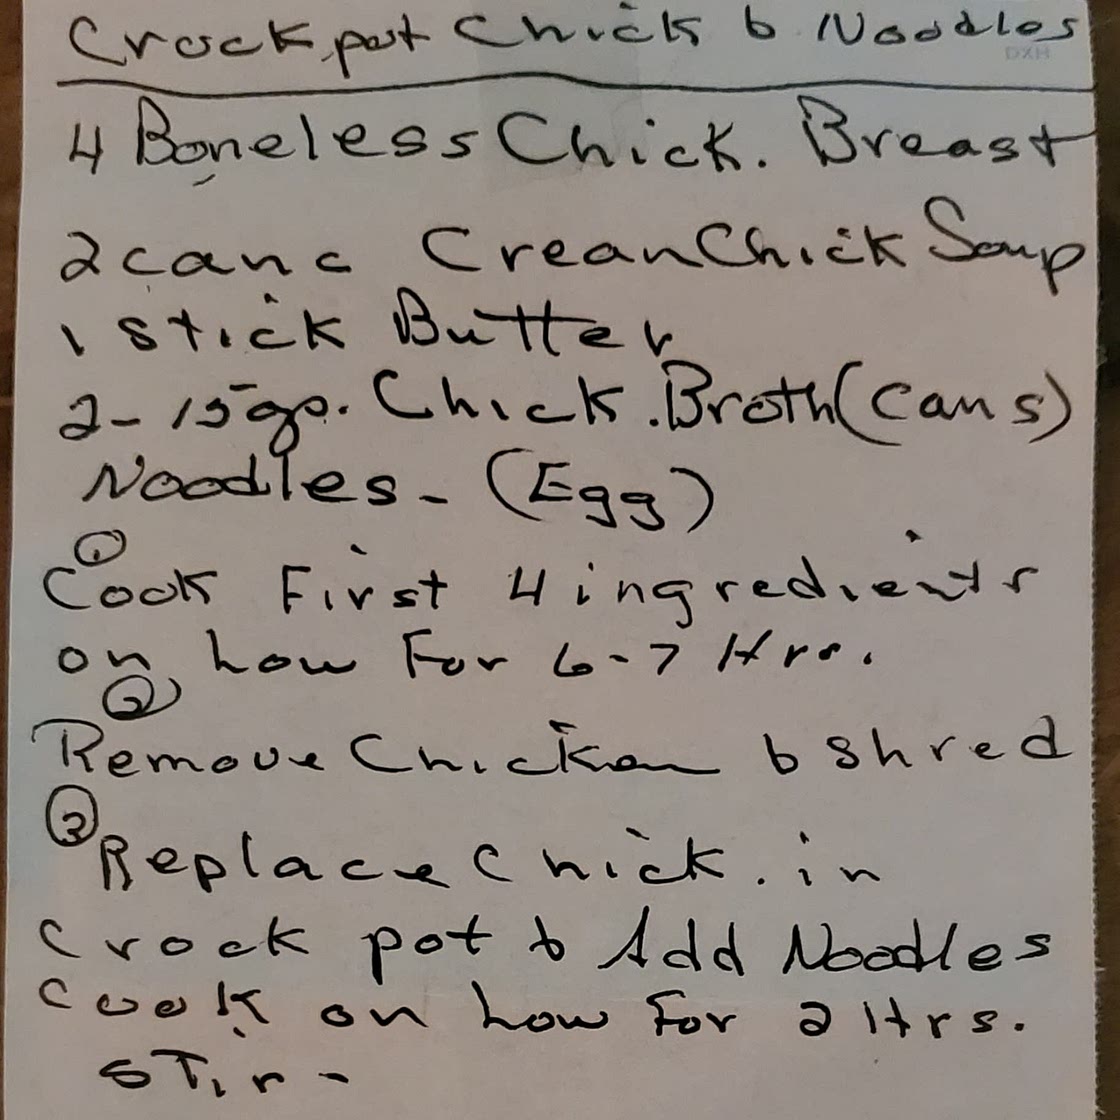 Crockpot Chick & Noodles
DXH
4 Boneless Chick. Breast
2 cans Cream Chick Soup
1 Stick Butter
2-15 Chick. Broth (Cans)
Noodles - (Egg)
①
Cook First 4 ingredients
on Low For 6-7 Hrs.
②
Remove Chicken & Shred
③
Replace Chick. in
Crock pot & Add Noodles
Cook on Low For 2 Hrs.
STir -